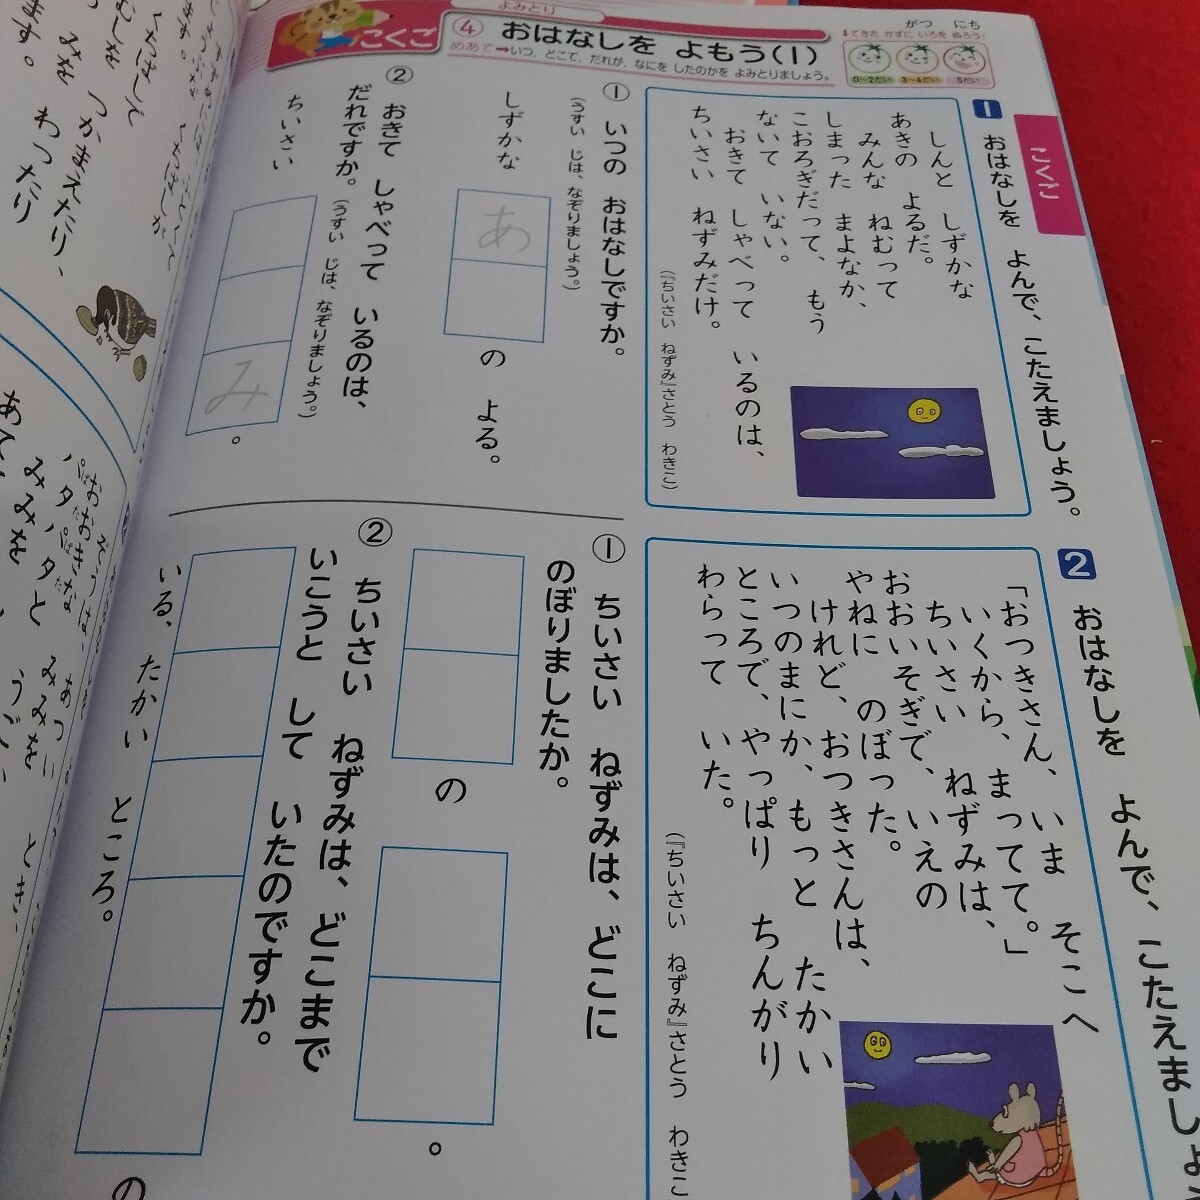 こくご
よみとり
④ おはなしを よもう(1)
めあて→いつ、どこで、だれが、なにを したのかを よみとりましょう。
がつ にち
できた かずに いろを ぬろう!
0〜2だい
3〜4だい
5だい
こくご
1 おはなしを よんで、こたえましょう。
しんと しずかな
あきの よるだ。
みんな ねむって
しまった まよなか、
こおろぎだって、もう
ないて いない。
おきて しゃべって いるのは、
ちいさい ねずみだけ。
(『ちいさい ねずみ』さとう わきこ)
① いつの おはなしですか。
(うすい じは、なぞりましょう。)
しずかな あ の よる。
② おきて しゃべって いるのは、
だれですか。(うすい じは、なぞりましょう。)
ちいさい み 。
2 おはなしを よんで、こたえましょ
「おつきさん、いま そこへ
いくから、まってて。」
ちいさい ねずみは、
おおいそぎで、いえの
やねに のぼった。
けれど、おつきさんは、
いつのまにか、もっと たかい
ところで、やっぱり ちんがり
わらって いた。
(『ちいさい ねずみ』さとう わきこ
① ちいさい ねずみは、どこに
のぼりましたか。
の 。
② ちいさい ねずみは、どこまで
いこうと して いたのですか。
の
いる、たかい ところ。
くちばしで
つかまえたり、
みを わったり
ます。